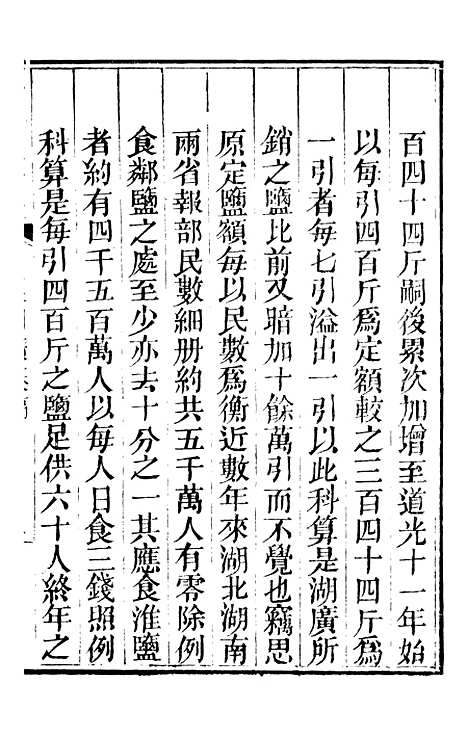 百四十四斤嗣後累次加增至道光十一年始
以每引四百斤爲定額較之三百四十四斤爲
一引者每七引溢出一引以此科算是湖廣所
銷之鹽比前又暗加十餘萬引而不覺也竊思
原定鹽額每以民數爲衡近數年來湖北湖南
兩省報部民數細册約共五千萬人有零除例
食鄰鹽之處至少亦去十分之一其應食淮鹽
者約有四千五百萬人以每人日食三錢照例
科算是每引四百斤之鹽足供六十人終年之